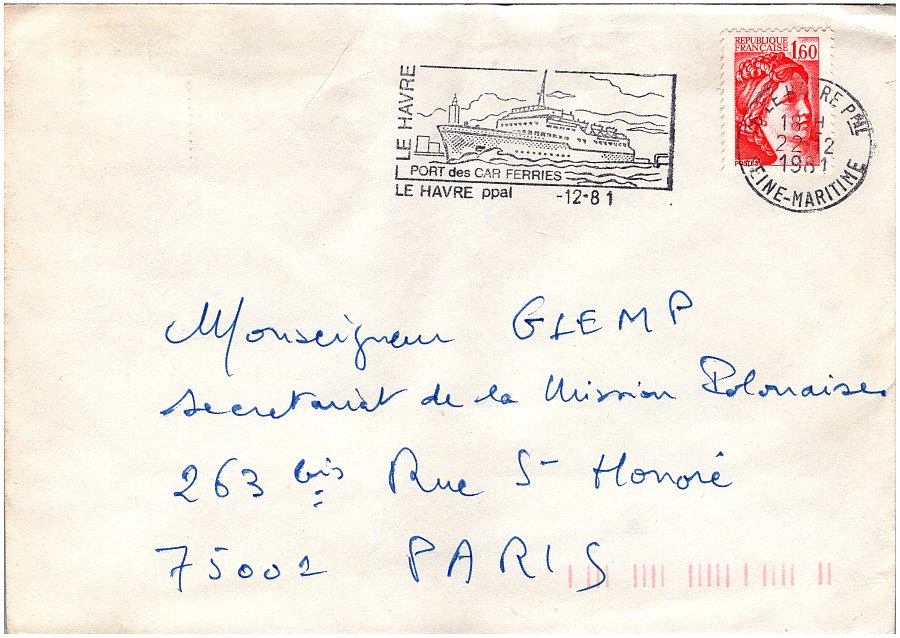 REPUBLIQUE
FRANÇAISE 1,60
LE HAVRE
PORT des CAR FERRIES
LE HAVRE ppal -12-81
LE HAVRE PPAL
18 H
22-12
1981
SEINE-MARITIME
Monseigneur GLEMP
Secretariat de la Mission Polonaise.
263 bis Rue St Honoré
75001 PARIS